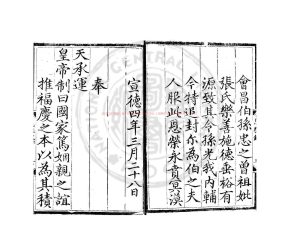 會昌伯孫忠之曾祖妣
張氏樂善施德垂裕有
源致其令孫光我內輔
今特追封尒為伯之夫
人服此恩榮永賁冥漠
宣德四年三月二十八日
奉
天承運
皇帝制曰國家篤姻親之誼
推福慶之本以為其積